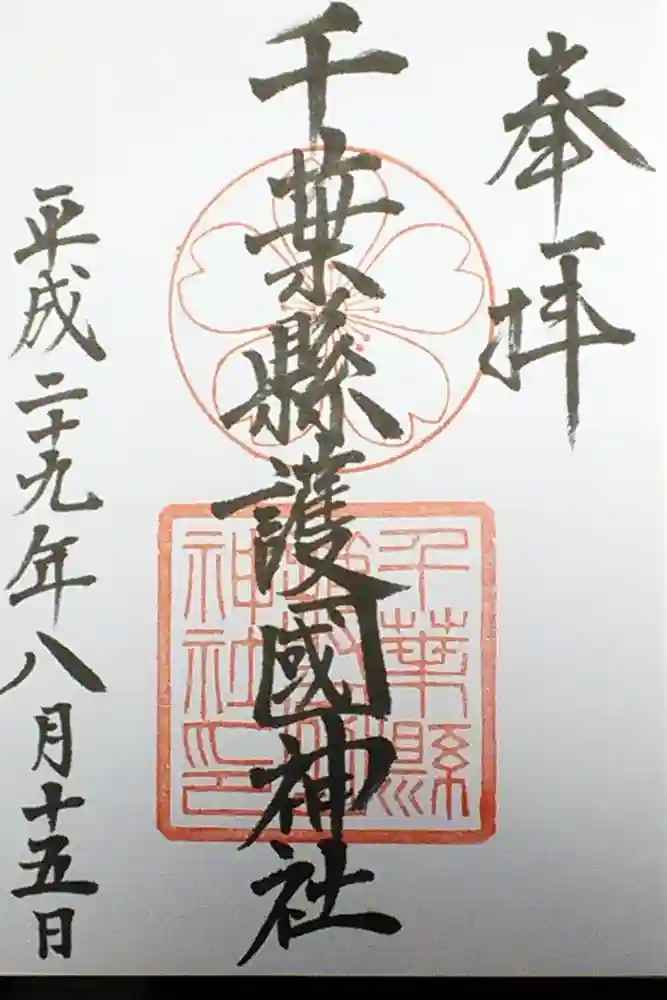 奉拝
千葉縣護國神社
平成二十九年八月十五日
千葉縣
神社印